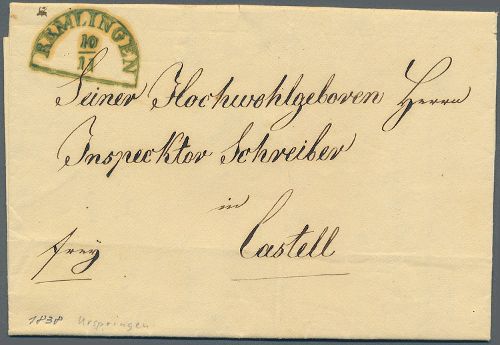 REMLINGEN
10
11
Seiner Hochwohlgeboren Herrn
Inspecktor Schreiber
in
Castell
frey
1838 Urspringen